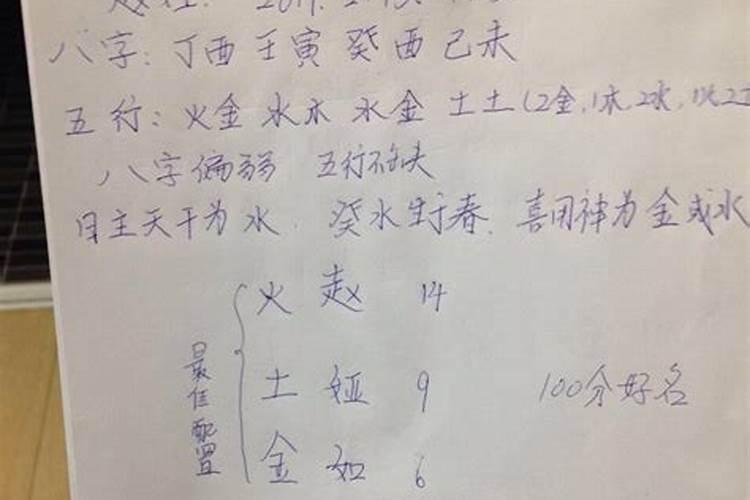 八字: 丁酉 壬寅 癸酉 己未
五行: 火金 水木 水金 土土(2金,1木,2水,1火2土
八字偏弱 五行不缺
日主天干为水. 癸水生于春. 喜用神为金或水
最佳配置
火 赵 14
土 娅 9
金 如 6
100分好名